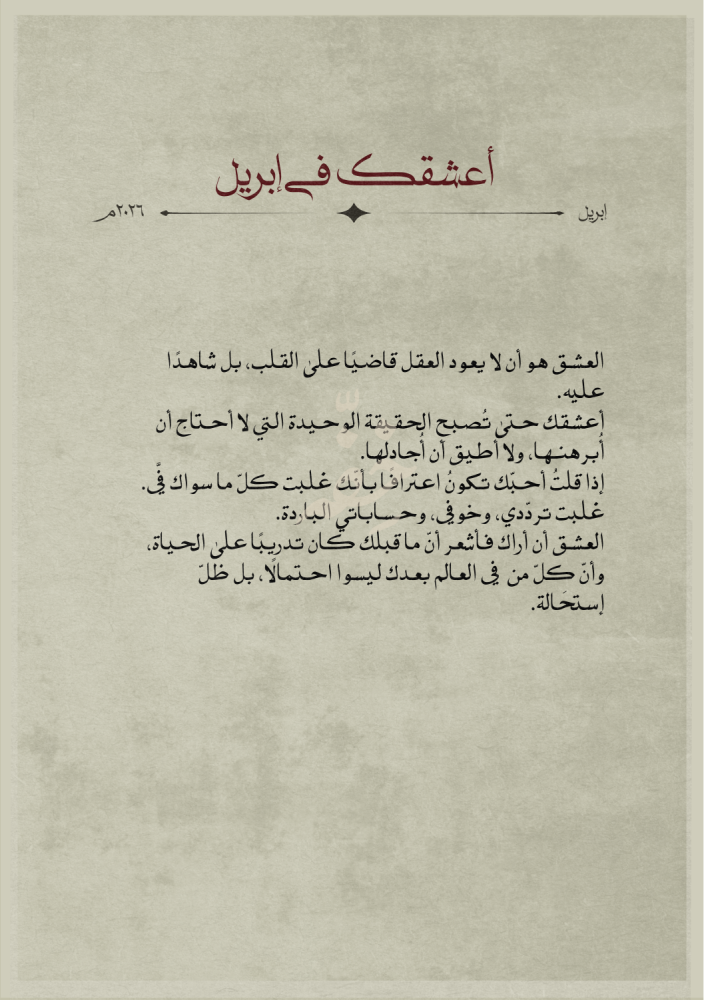 أعشقك في إبريل
إبريل ٢٠٢٦م
العشق هو أن لا يعود العقل قاضيًا على القلب، بل شاهدًا
عليه.
أعشقك حتى تُصبح الحقيقة الوحيدة التي لا أحتاج أن
أُبرهنها، ولا أطيق أن أُجادلها.
إذا قلتُ أحبّك تكونُ اعترافًا بأنّك غلبت كلّ ما سواك فيَّ.
غلبت تردّدي، وخوفي، وحساباتي الباردة.
العشق أن أراك فأشعر أنّ ما قبلك كان تدريبًا على الحياة،
وأنّ كلّ من في العالم بعدك ليسوا احتمالًا، بل ظلّ
إستحَالة.